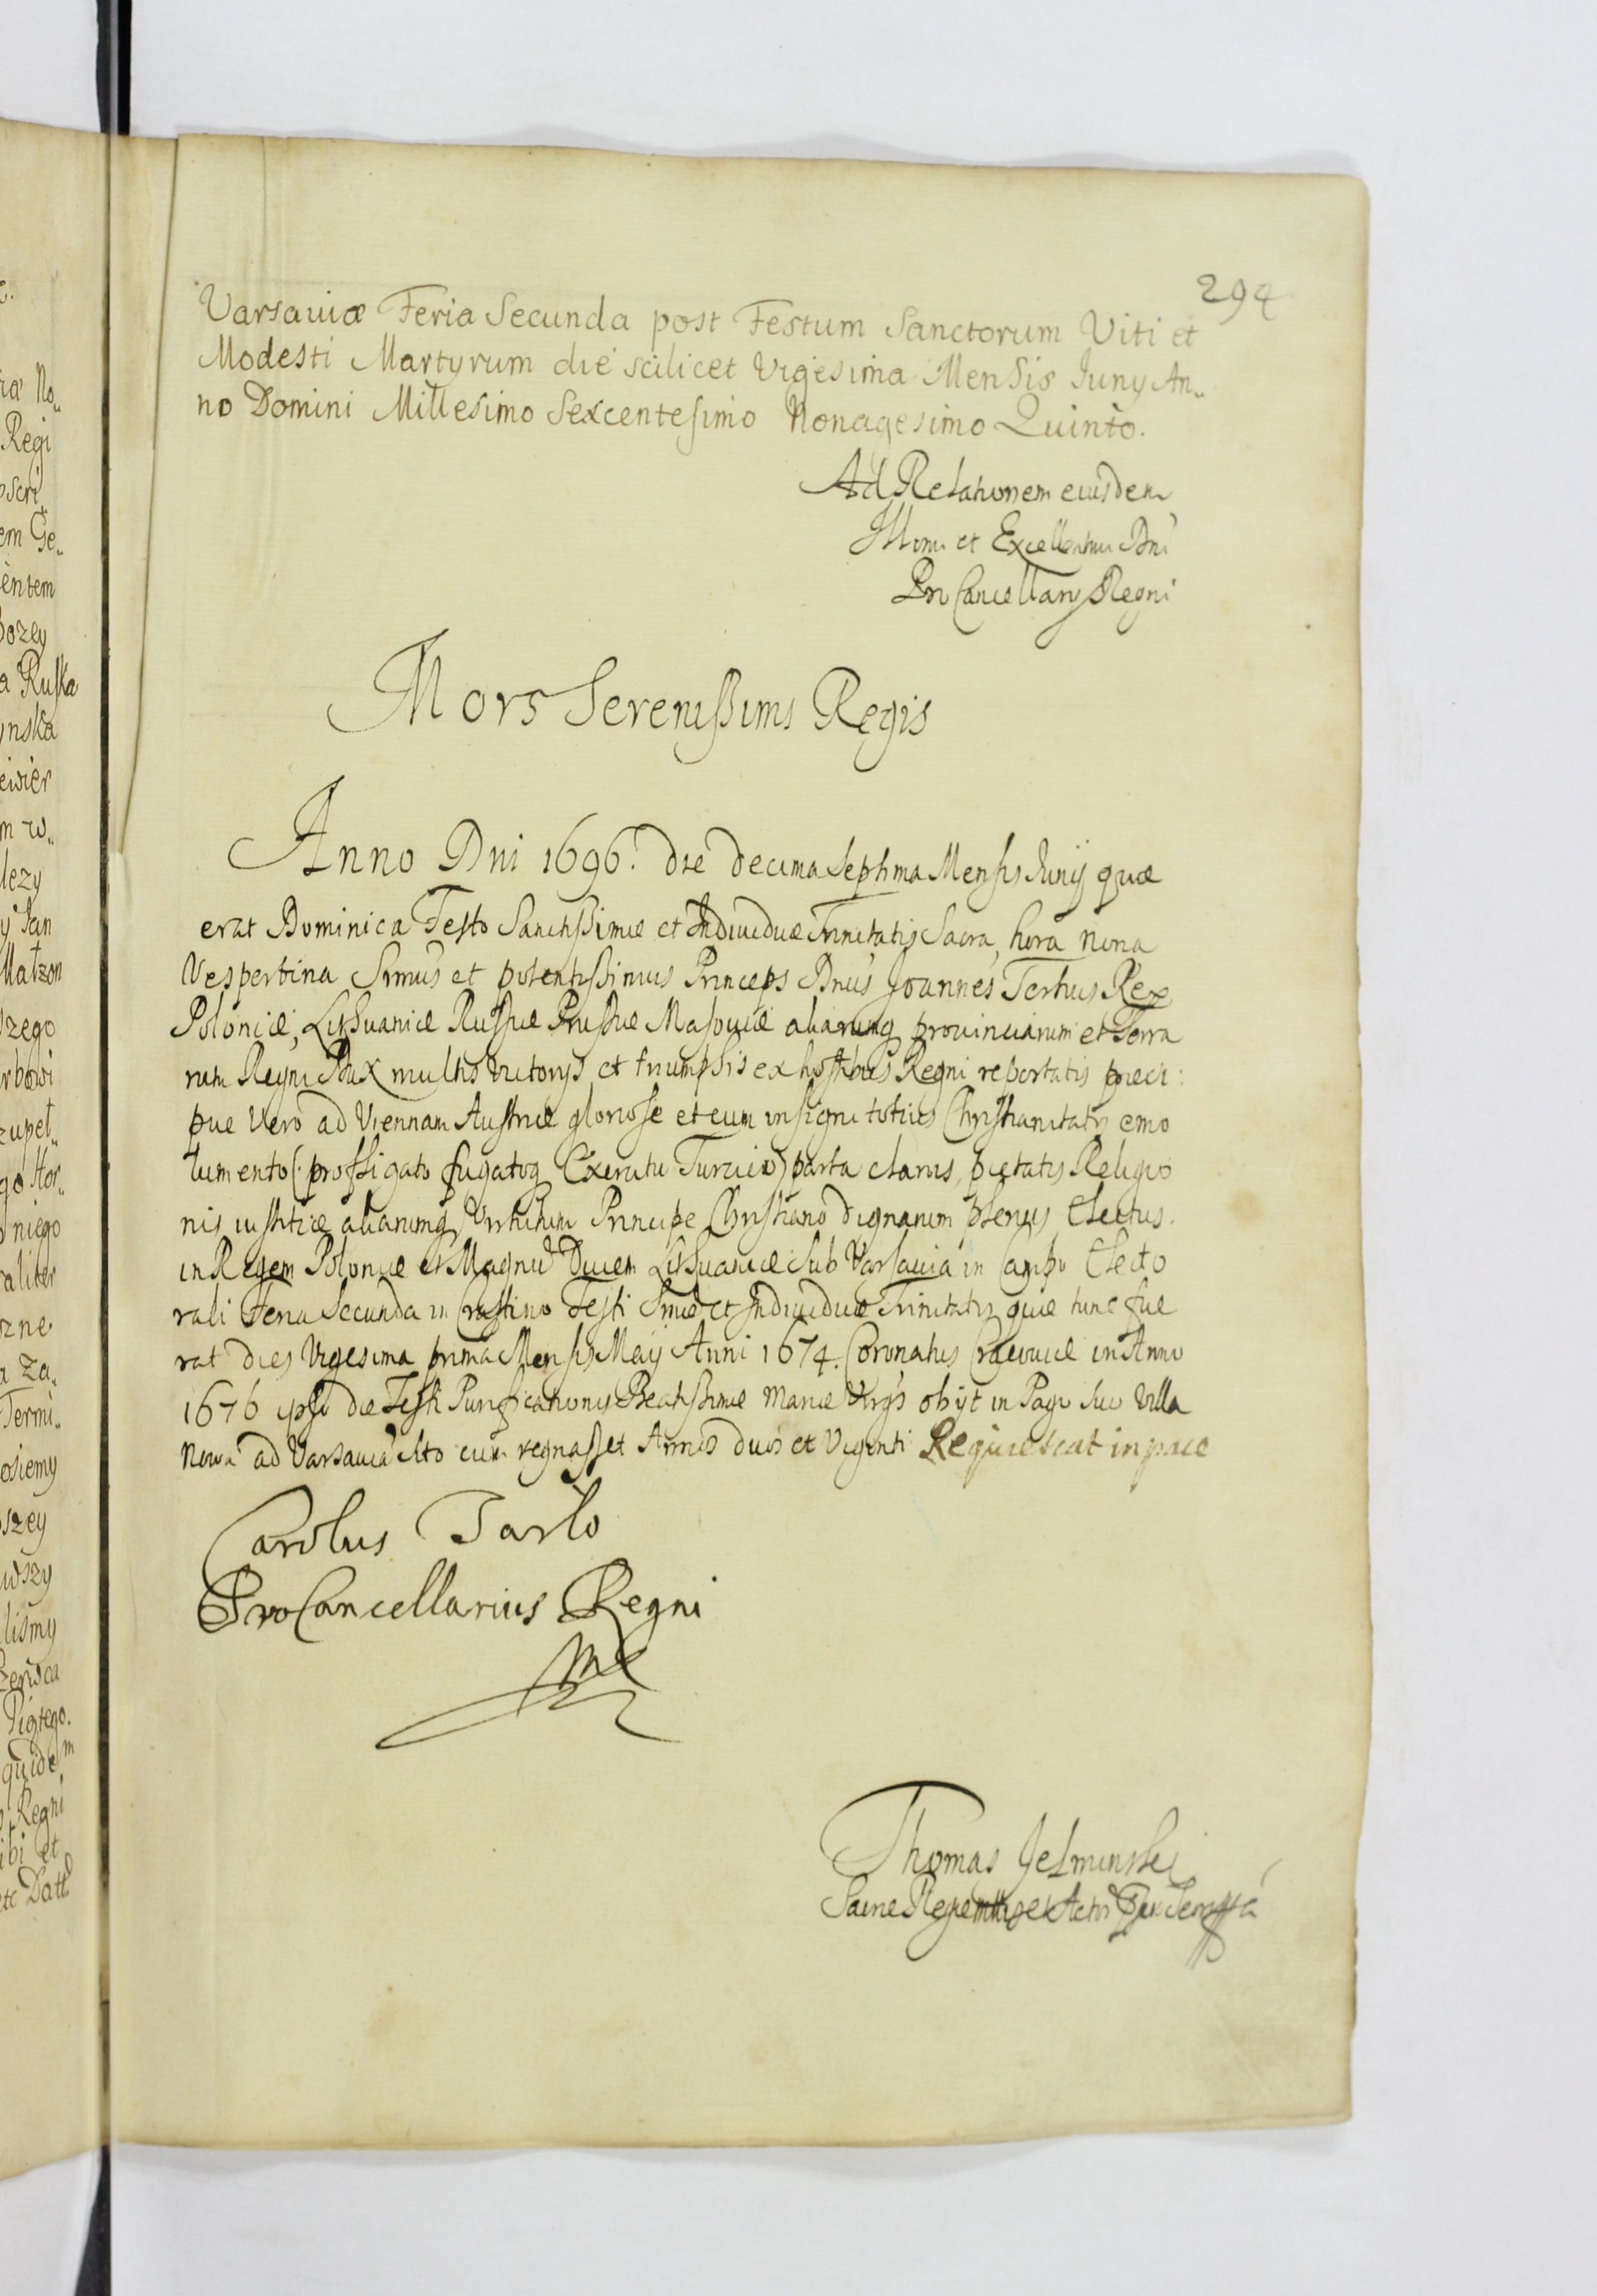 294
Varsauiæ Feria Secunda post Festum Sanctorum Viti et
Modesti Martyrum die scilicet Vigesima Mensis Iuny An„
no Domini Millesimo Sexcentesimo Nonagesimo Quinto.
Ad Relationem eiusdem
Illmi et Excellentmi Dni
Pro Cancellarij Regni
Mors Serenissimi Regis
Anno Dni 1696. die decima septima Mensis Junij quæ
erat Dominica Festo Sanctissimæ et Indiuiduæ Trinitatis Sacra, hora nona
Vespertina Srmus et potentissimus Princeps Dnus Joannes Tertius Rex
Poloniæ, Lithuaniæ Russiæ Prussiæ Masouiæ aliarumq prouinciarum et Terra
rum Regni Dux multis victorijs et triumphis ex hostibus Regni reportatis præci:
pue Vero ad Viennam Austriæ gloriose et cum insigni totius Christianitatis emo
lumento (profligato fugatoq Exercitu Turcico) parta clarus, pietatis Religio
nis iustitiæ aliarumq Virtutum Principe Christiano dignarum plenus Electus
in Regem Poloniæ et Magnu Ducem Lithuaniæ sub Varsauia in Campo Electo
rali Feria Secunda in Crastino Festi Smæ et Indiuiduæ Trinitatis quæ tunc fue
rat dies Vigesima prima Mensis Maij Anni 1674. Coronatus Cracouiæ in Anno
1676 ipso die Festi Purificationis Beatissimæ Mariæ Virgs obijt in Pago suo Villa
Nova ad Varsauia sito cum regnasset Annis duos et Viginti Requiescat in pace
Carolus Tarlo
ProCancellarius Regni
Thomas Jelminski
Sacræ Regiæ Mttis et Actor
ia No„
Regi
oscri
em Ge„
entem
Bozey
a Ruska
ynska
ewier
m w„
lezy
y Jan
Matzon
szego
rbowi
zupeł„
go Kor„
niego
raliter
zne
a Za„
Termi„
osiemy
szey
wszy
lismy
Piątego.
quidem
Regni
ibi et
etc Datt